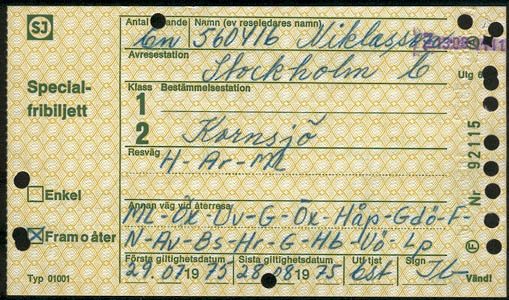 SJ
Antal resande Namn (ev reseledares namn)
En 560416 Niklasson
Avresestation
Stockholm C
Utg 6
Special-
fribiljett
Klass Bestämmelsestation
1
2 Kornsjö
Resväg
H-Ar-ML
Enkel
Annan väg vid återresa
ML-Öx-Uv-G-Öx-Håp-Gdö-F-
Fram o åter
N-Av-Bs-Hr-G-Hb-Vö-Lp
Första giltighetsdatum Sista giltighetsdatum Utt tjst Sign
29.07 1975 28.08 1975 Cst
Typ 01001
Vänd!
Nr 92115
A
F